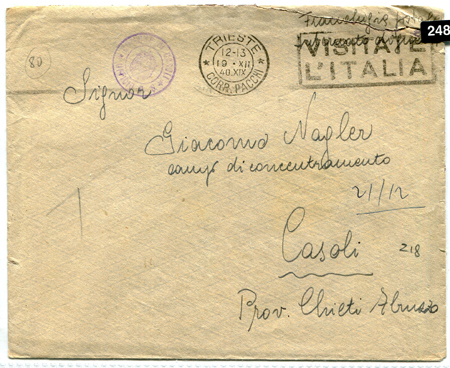 248
TRIESTE
12-13
19 · XII
40.XIX
CORR. PACCHI
VISITATE
L'ITALIA
80
Signor
Giacomo Nagler
camp di concentramento
21/12
Casoli
218
Prov. Chieti Abruzzo